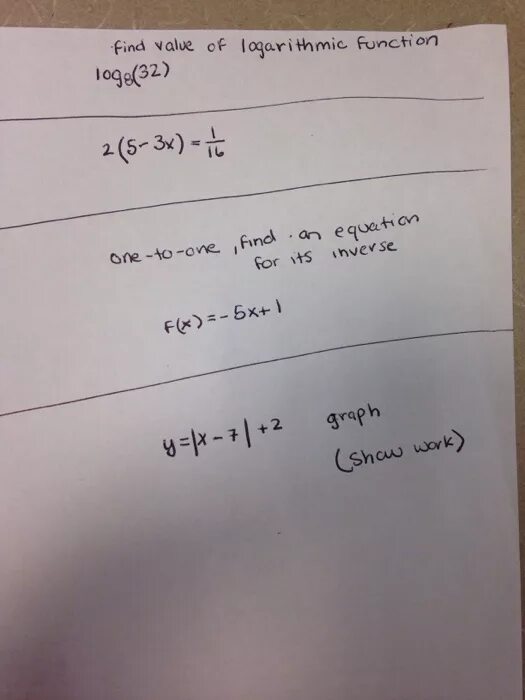 find value of logarithmic function
log₈(32)
2(5-3x) = 1/16
one-to-one, find an equation
for its inverse
F(x) = -5x+1
y=|x-7|+2 graph
(show work)